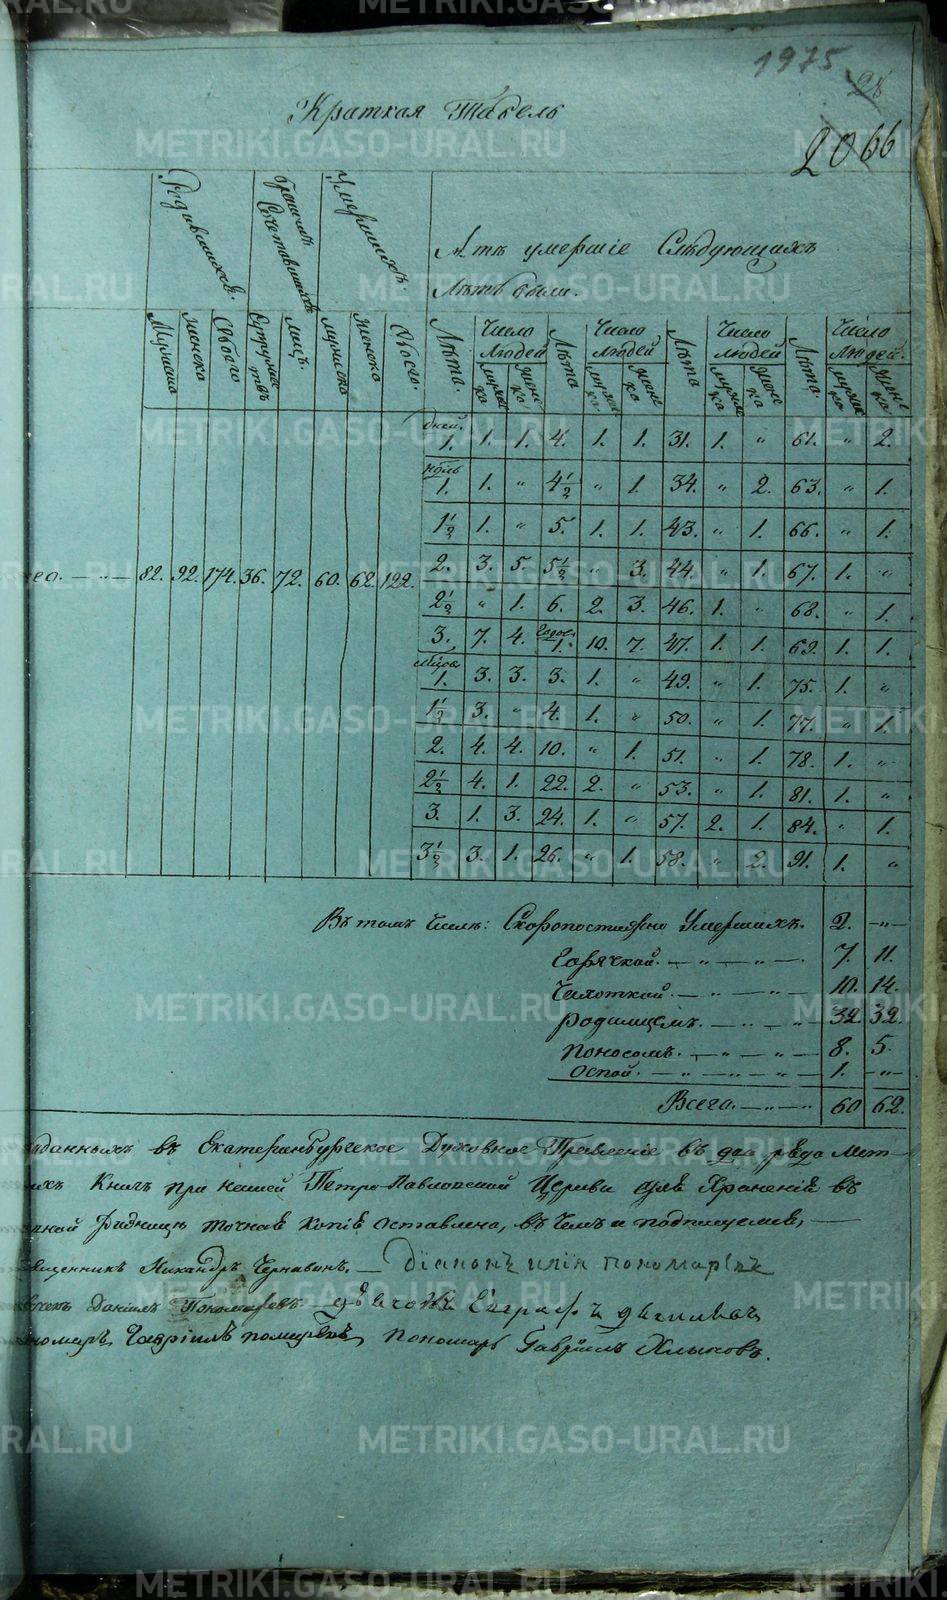 1975
28
2066
Краткая Табель
Родившихся.
Бракомъ Сочетавшихся
Умершихъ.
А тѣ умершіе Слѣдующихъ
Лѣтъ были.
Мужеска Женска Обоего Супружествъ Лицъ. мужеска женска Обоего. Лѣта. Число людей Лѣта Число людей Лѣта Число людей Лѣта. Число людей.
мужеска женска мужеска женска мужеска женска мужеска женска
дней. 1. 1. 1. 4. 1. 1. 31. 1. " 61. " 2.
нѣдль 1. 1. " 4½ " 1. 34. " 2. 63. " 1.
1½ 1. " 5. 1. 1. 43. " 1. 66. " 1.
82. 92. 174. 36. 72. 60. 62. 122. 2. 3. 5. 5½ " 3. 44. " 1. 67. 1. "
2½ " 1. 6. 2. 3. 46. 1. " 68. " 1.
3. 7. 4. Годов. 1. 10. 7. 47. 1. 1. 69. 1. 1.
мѣсяц. 1. 3. 3. 3. 1. " 49. " 1. 75. 1. "
1½ 3. " 4. 1. " 50. " 1. 77. " 1.
2. 4. 4. 10. " 1. 51. " 1. 78. 1. "
2½ 4. 1. 22. 2. " 53. " 1. 81. 1. "
3. 1. 3. 24. 1. " 57. 2. 1. 84. " 1.
3½ 3. 1. 26. " 1. 58. " 2. 91. 1. "
Въ томъ числѣ: Скоропостижно Умершихъ. 2. —"—
Горячкой. — " — " — 7. 11.
Чахоткой. — " — " — 10. 14.
родимцемъ. — " — " — 32. 32.
поносомъ. — " — " — 8. 5.
оспой. — " — " — " — 1. —"—
Всего. — " — " — 60 62.
въ Екатеринбургское Духовное Правленіе въ два ряда Мет-
Книгъ при нашей Петро-Павловской Церкви для храненія въ
ризницѣ точная копія оставлена, въ чемъ и подписуемся, —
Никандръ Чернавинъ. — Діаконъ илія пономаревъ
Даніилъ Пономаревъ. дьячокъ Евграфъ
Гавріилъ пономарь Гавріилъ Хлыновъ.
METRIKI.GASO-URAL.RU